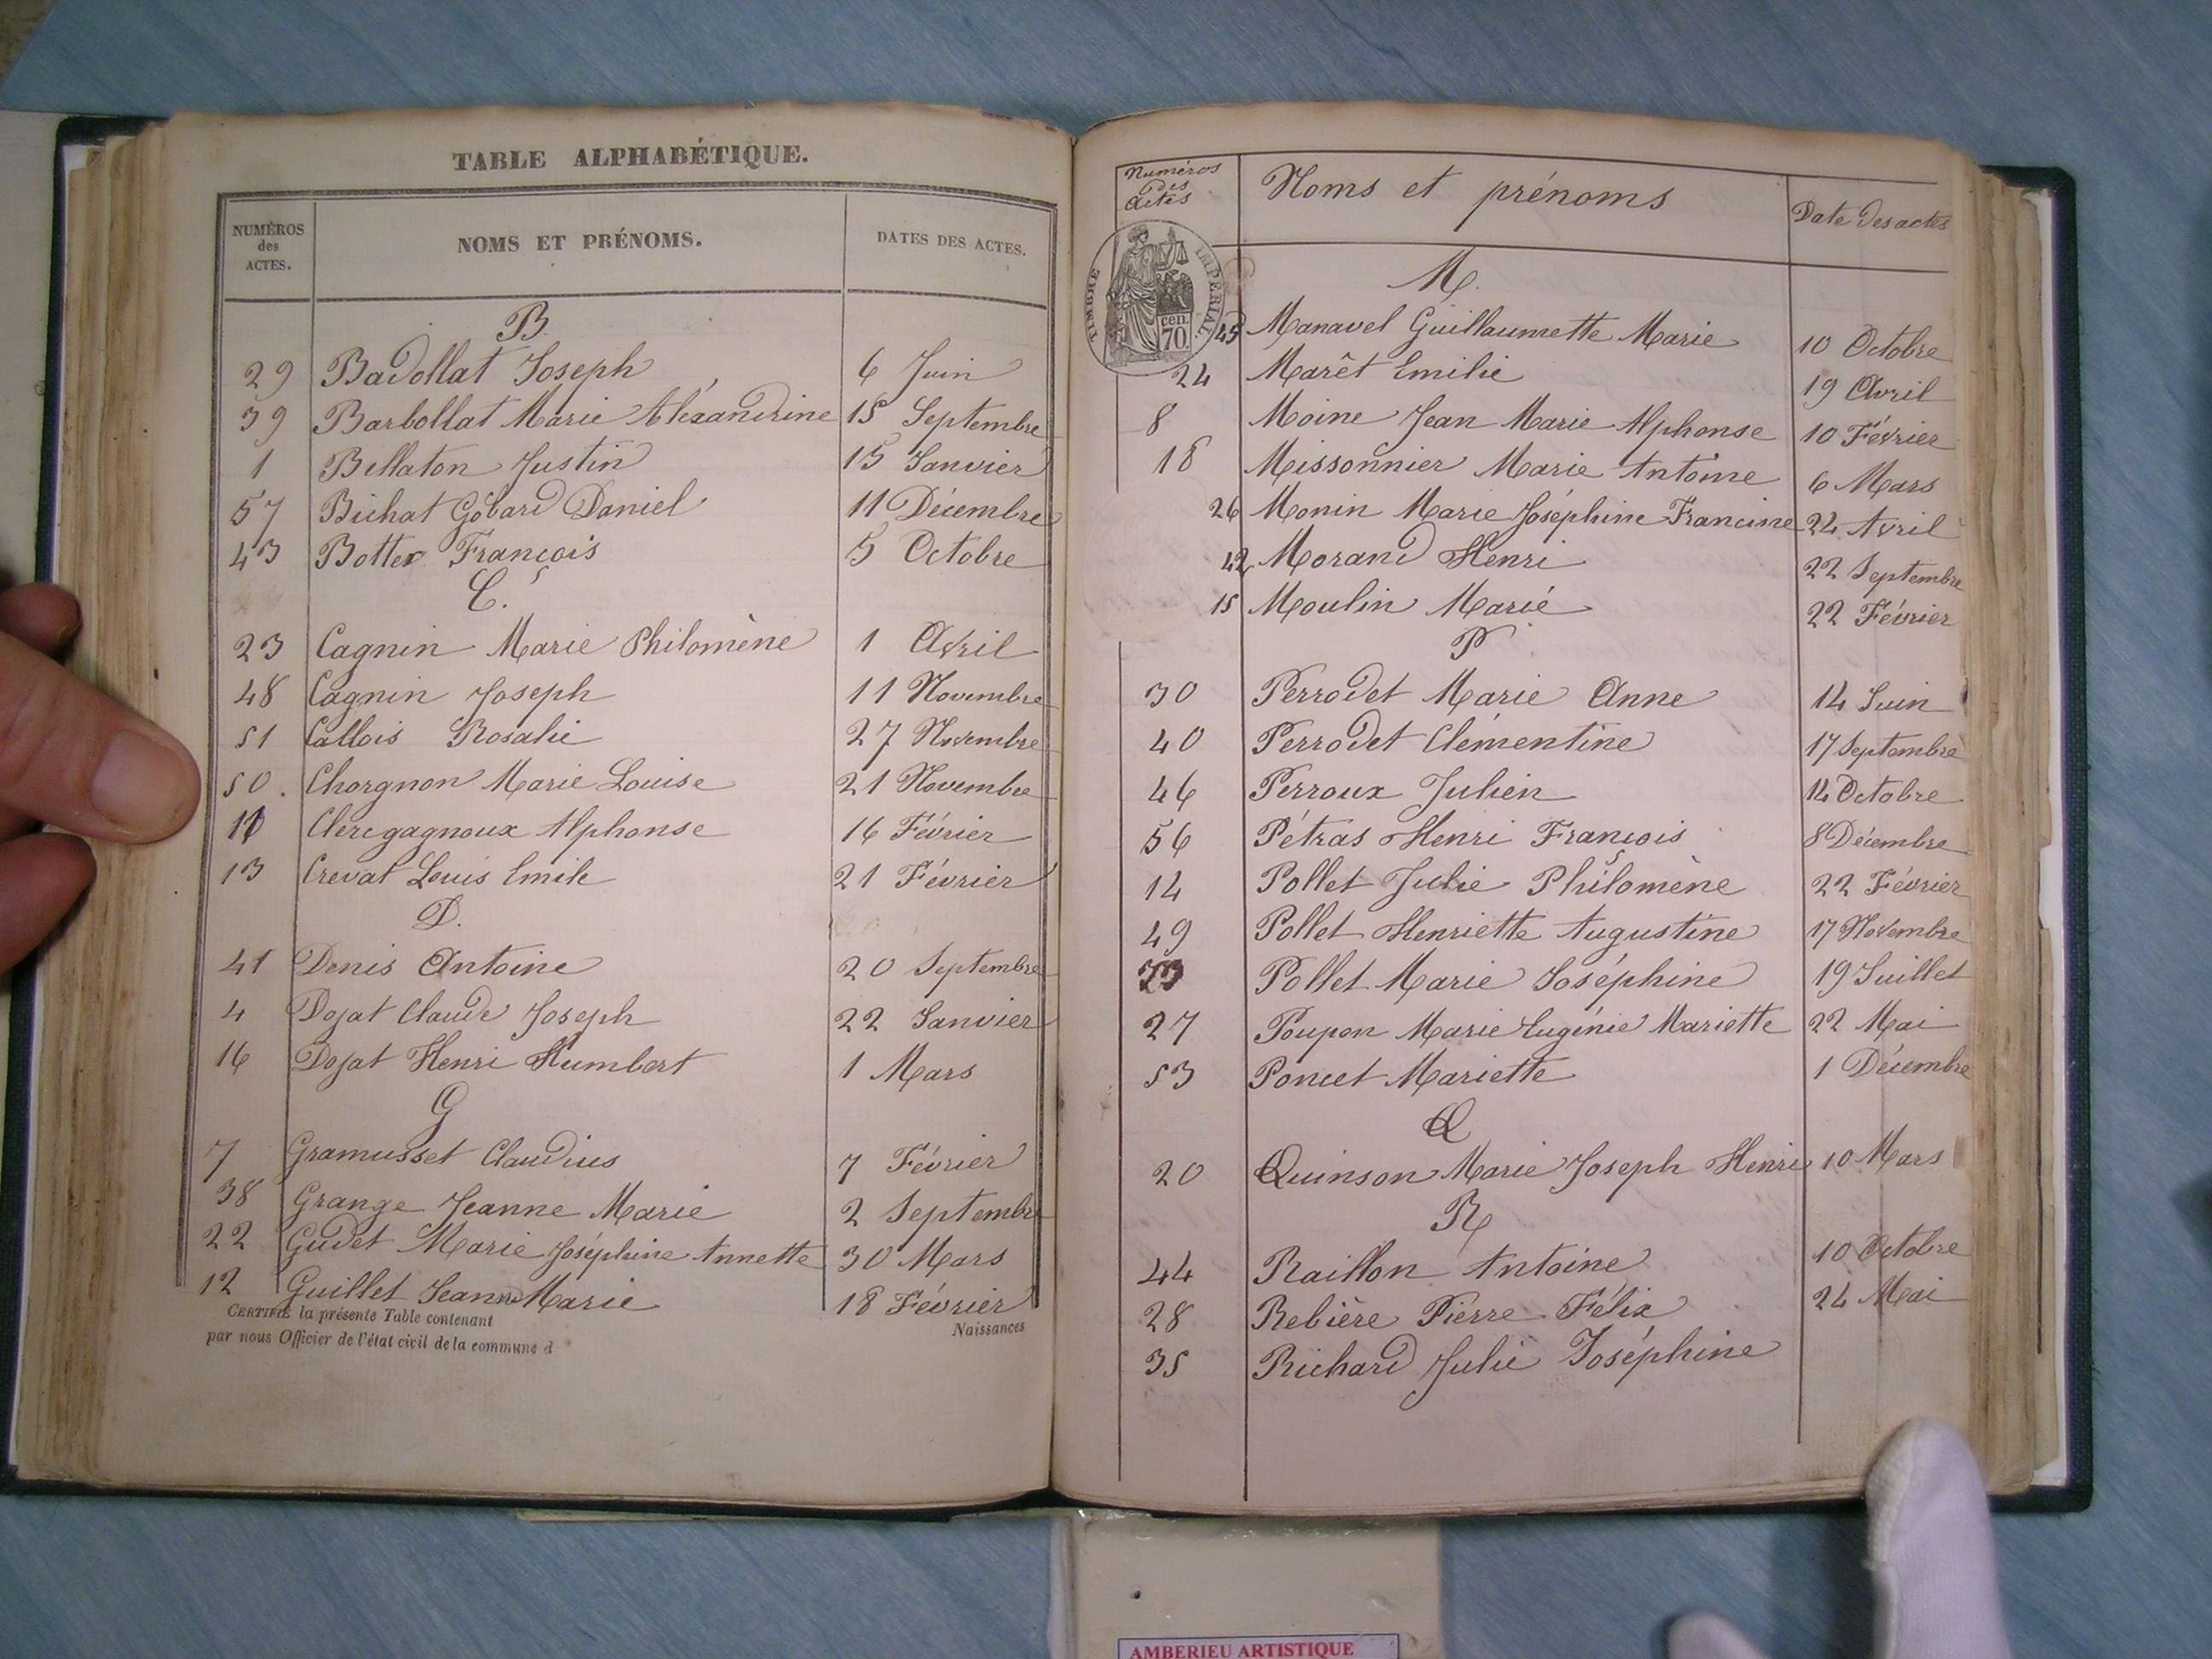 TABLE ALPHABÉTIQUE.
NUMÉROS des ACTES. NOMS ET PRÉNOMS. DATES DES ACTES.
B.
29 Badollat Joseph 6 Juin
39 Barbollat Marie Aléxandrine 15 Septembre
1 Bellaton Justin 15 Janvier
57 Bichat Gobard Daniel 11 Décembre
43 Bottex François 5 Octobre
C.
23 Cagnin Marie Philomène 1 Avril
48 Cagnin Joseph 11 Novembre
51 Callois Rosalie 27 Novembre
50. Chorgnon Marie Louise 21 Novembre
Clercgagnoux Alphonse 16 Février
13 Creval Louis Emile 21 Février
D.
41 Denis Antoine 20 Septembre
4 Dojat Claude Joseph 22 Janvier
16 Dojat Henri Humbert 1 Mars
G
7 Gramusset Claudius 7 Février
38 Grange Jeanne Marie 2 Septembre
22 Gudet Marie Joséphine Annette 30 Mars
12 Guillet Jeanne Marie 18 Février
CERTIFIÉ la présente Table contenant Naissances
par nous Officier de l'état civil de la commune d
Numéros des Actes Noms et prénoms Date des actes
TIMBRE IMPÉRIAL.
cen. 70.
M.
45 Manavel Guillaumette Marie 10 Octobre
24 Marêt Emilie 19 Avril
8 Moine Jean Marie Alphonse 10 Février
18 Missonnier Marie Antoine 6 Mars
26 Monin Marie Joséphine Francine 24 Avril
42 Morand Henri 22 Septembre
15 Moulin Marie 22 Février
P
30 Perrodet Marie Anne 14 Juin
40 Perrodet Clémentine 17 Septembre
46 Perroux Julien 14 Octobre
56 Pétras Henri François 8 Décembre
14 Pollet Julie Philomène 22 Février
49 Pollet Henriette Augustine 17 Novembre
Pollet Marie Joséphine 19 Juillet
27 Poupon Marie Eugénie Mariette 22 Mai
53 Poncet Mariette 1 Décembre
Q
20 Quinson Marie Joseph Henri 10 Mars
R
44 Raillon Antoine 10 Octobre
28 Rebière Pierre Félix 24 Mai
35 Richard Julie Joséphine
AMBERIEU ARTISTIQUE